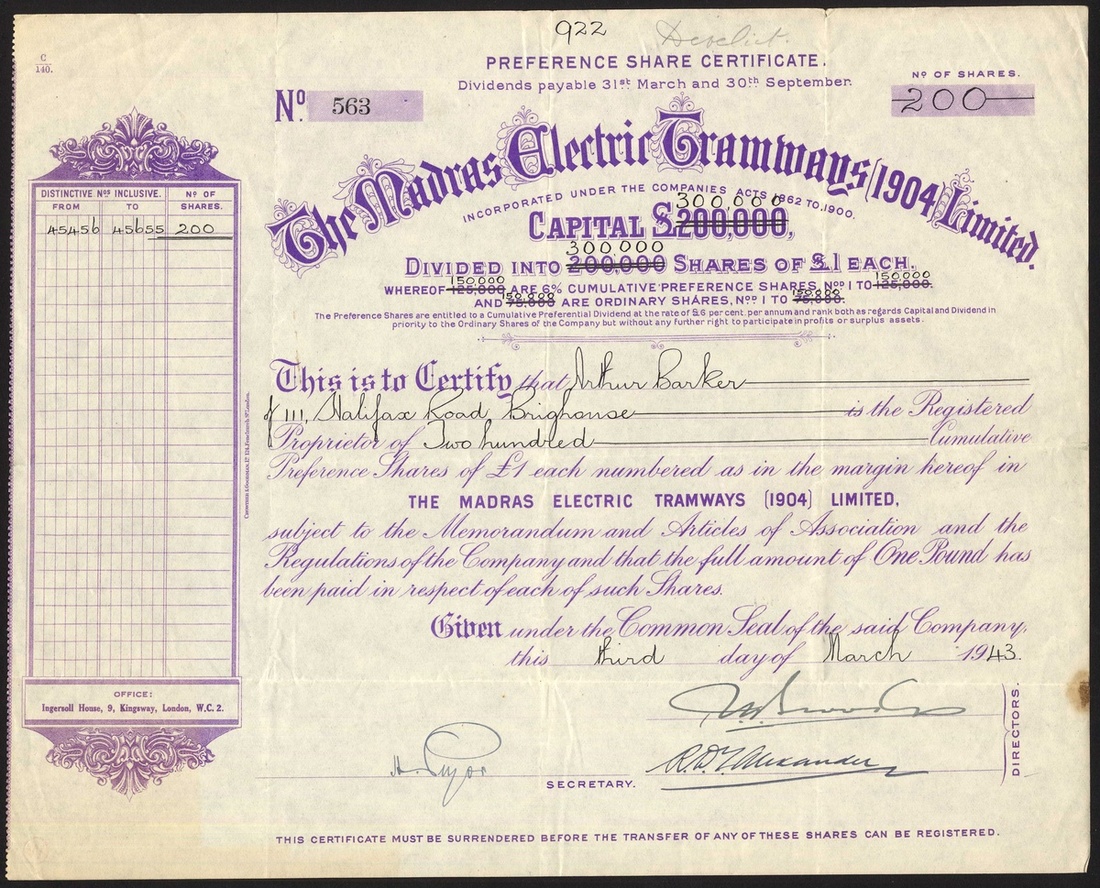 922
Derelict.
C
140.
PREFERENCE SHARE CERTIFICATE.
Dividends payable 31st March and 30th September.
No. 563
No OF SHARES.
200
The Madras Electric Tramways (1904) Limited.
INCORPORATED UNDER THE COMPANIES ACTS 1862 TO 1900.
300,000
CAPITAL £200,000,
300,000
DIVIDED INTO 200,000 SHARES OF £1 EACH.
150,000 150,000
WHEREOF 125,000 ARE 6% CUMULATIVE PREFERENCE SHARES, Nos 1 TO 125,000.
150,000 150,000
AND 75,000 ARE ORDINARY SHARES, Nos 1 TO 75,000.
The Preference Shares are entitled to a Cumulative Preferential Dividend at the rate of £6 per cent. per annum and rank both as regards Capital and Dividend in
priority to the Ordinary Shares of the Company but without any further right to participate in profits or surplus assets.
DISTINCTIVE Nos INCLUSIVE. No OF
FROM TO SHARES.
45456 45655 200
This is to Certify that Arthur Barker
of 111, Halifax Road, Brighouse is the Registered
Proprietor of Two hundred Cumulative
Preference Shares of £1 each numbered as in the margin hereof in
THE MADRAS ELECTRIC TRAMWAYS (1904) LIMITED,
subject to the Memorandum and Articles of Association and the
Regulations of the Company and that the full amount of One Pound has
been paid in respect of each of such Shares.
Given under the Common Seal of the said Company,
this third day of March 1943.
OFFICE:
Ingersoll House, 9, Kingsway, London, W.C. 2.
R.D.T. Alexander
DIRECTORS.
H. Pryor
SECRETARY.
THIS CERTIFICATE MUST BE SURRENDERED BEFORE THE TRANSFER OF ANY OF THESE SHARES CAN BE REGISTERED.